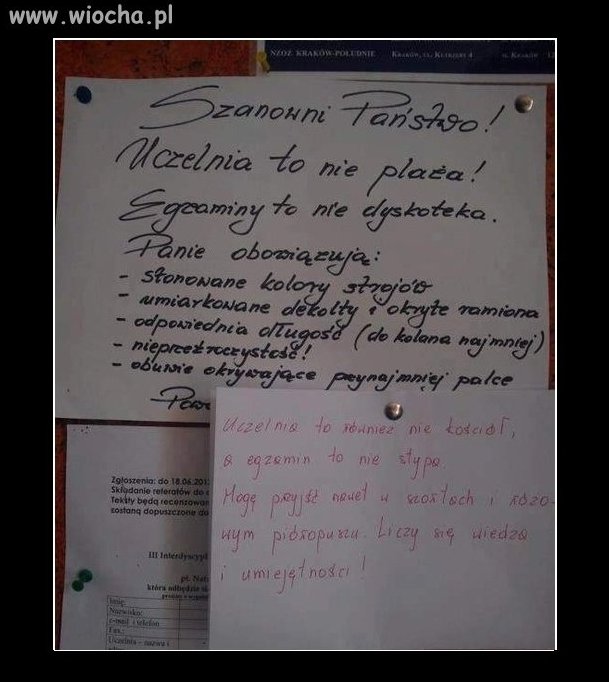 www.wiocha.pl
NZOZ KRAKÓW-POŁUDNIE Kraków, ul. Kutrzeby 4
Szanowni Państwo!
Uczelnia to nie plaża!
Egzaminy to nie dyskoteka.
Panie obowiązują:
- stonowane kolory strojów
- umiarkowane dekolty i okryte ramiona
- odpowiednia długość (do kolana najmniej)
- nieprzeźroczystość!
- obuwie okrywające przynajmniej palce
Uczelnia to również nie kościół,
a egzamin to nie stypa.
Mogę przyjść nawet w szortach i różo-
wym pióropuszu. Liczy się wiedza
i umiejętności!
Zgłoszenia: do 18.06.201
Składanie referatów do
Teksty będą recenzowan
zostaną dopuszczone do
III Interdyscypl
pt. Nat
która odbędzie si
Imię:
Nazwisko:
e-mail i telefon
Fax.:
Uczelnia - nazwa i